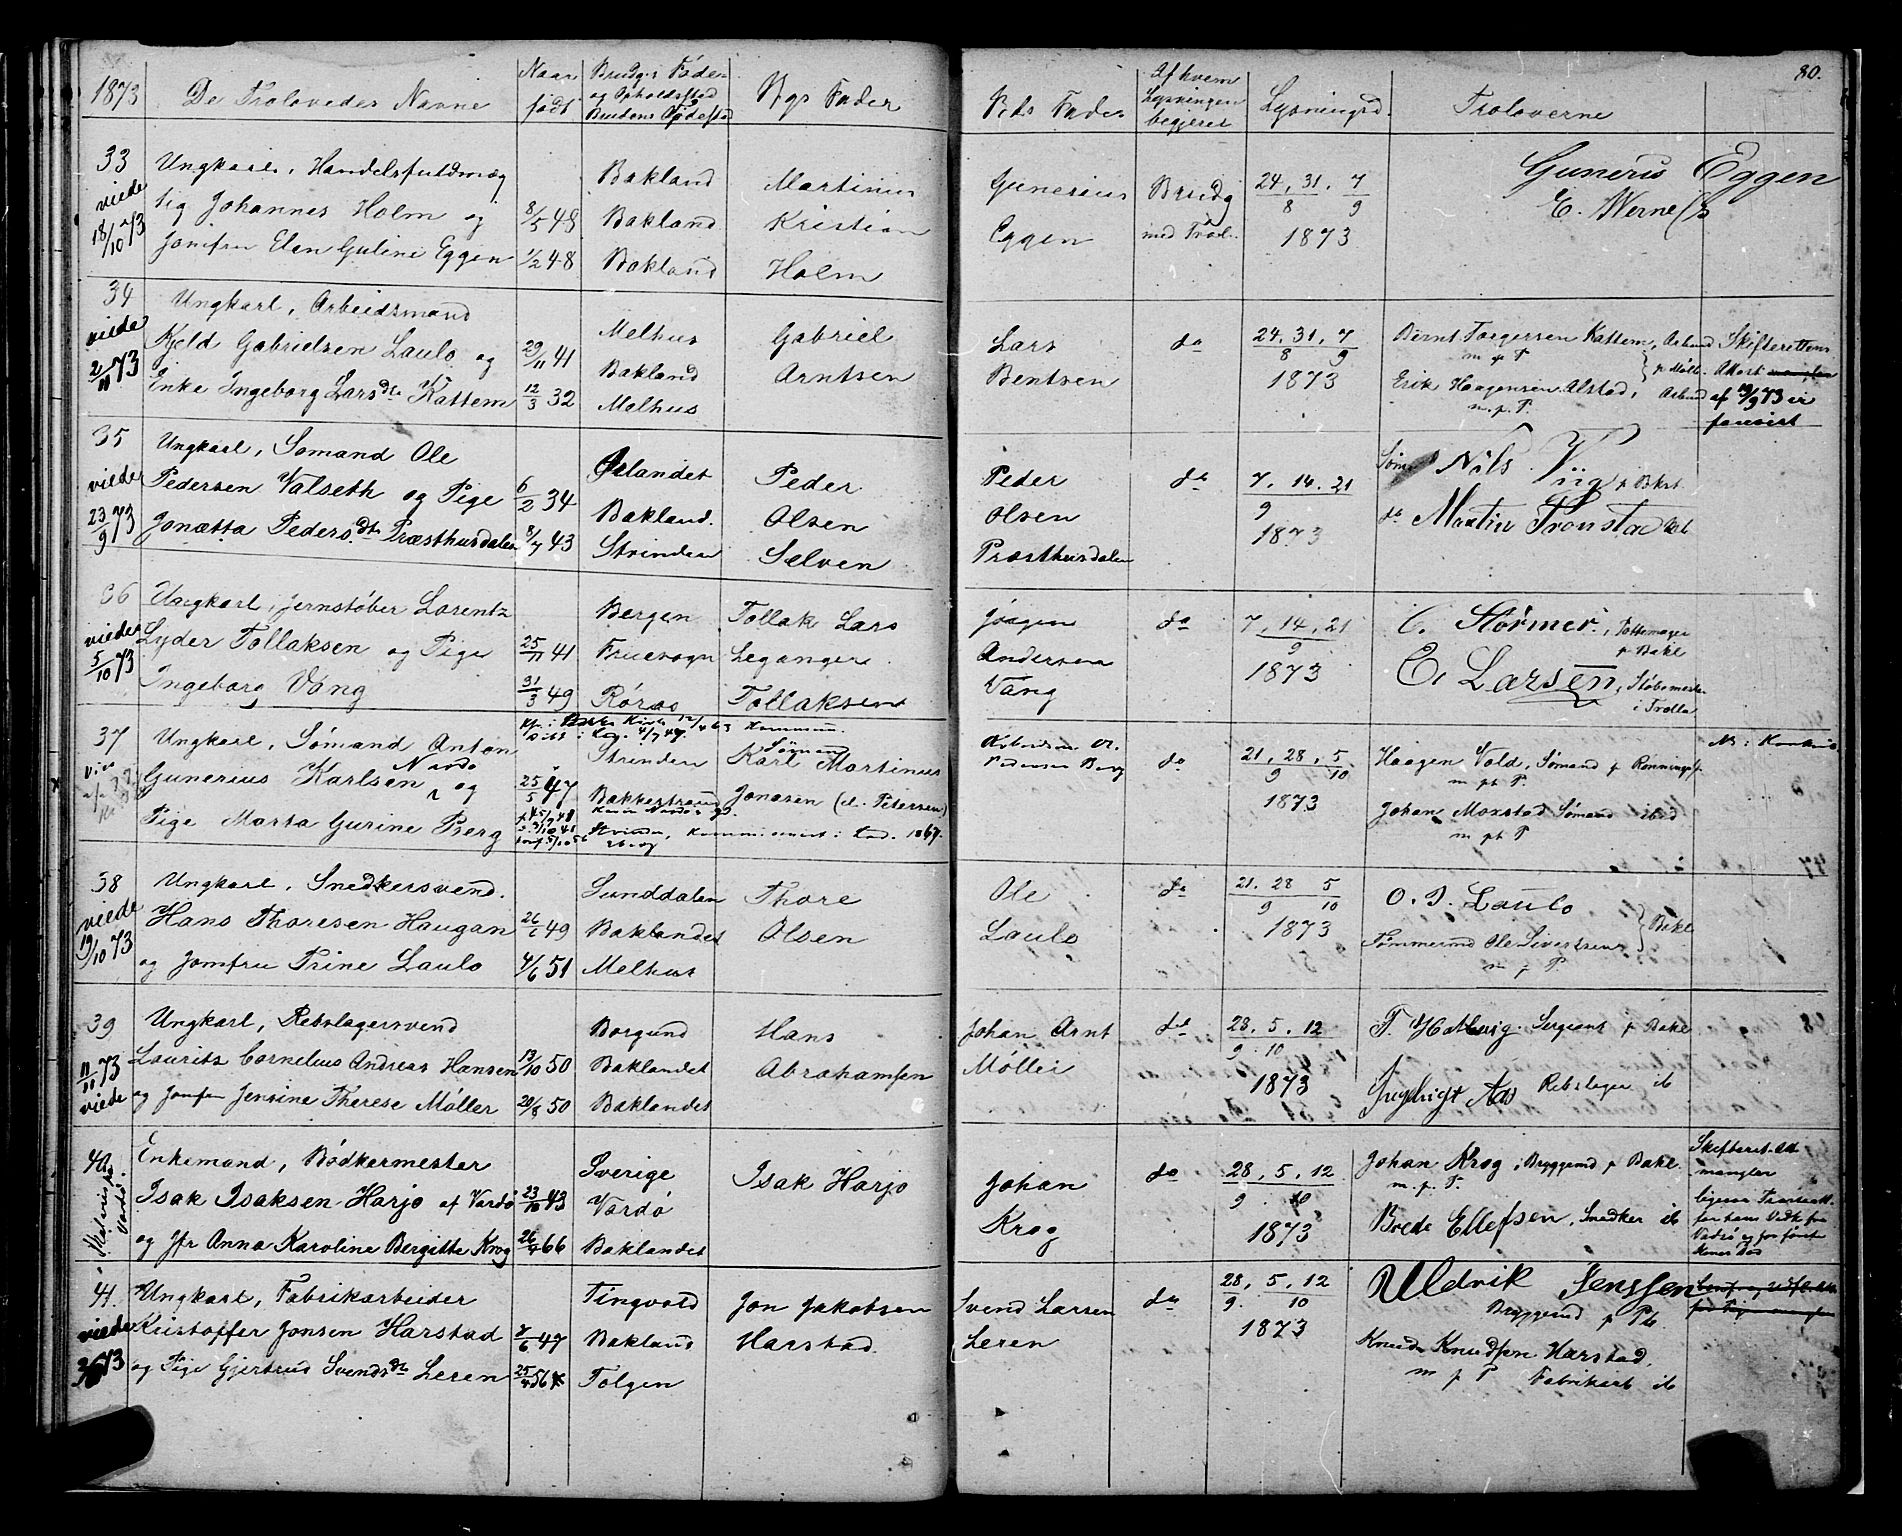 1873
De Trolovedes Navne
Naar
født
Brudg.s Føde-
og Opholdssted
Brudens Fødested
Bgs Fader
33
viede
18/10 73
Ungkarl, Handelsfuldmæg
tig Johannes Holm og
Jomfru Elen Guline Eggen
8/5 48
1/2 48
Bakland
Bakland
Bakland
Martinus
Kristian
Holm
34
viede
2/11 73
Ungkarl, Arbeidsmand
Kjeld Gabrielsen Laulo og
Enke Ingeborg Larsdtr Kattem
29/11 41
12/3 32
Melhus
Bakland
Melhus
Gabriel
Arntsen
35
viede
23/9 73
Ungkarl, Sømand Ole
Pedersen Valseth og Pige
Jonætta Pedersdtr Præsthusdalen
6/2 34
8/7 43
Ørlandet
Bakland.
Strinden
Peder
Olsen
Selven
36
viede
5/10 73
Ungkarl, Jernstøber Lorentz
Lyder Tollaksen og Pige
Ingeborg Vang
25/11 41
31/3 49
Bergen
Fruesogn
Røraas
Tollak Lars
Leganger
Tollaksen
37
Ungkarl, Sømand Anton
Nardo
Gunerius Karlsen, og
Pige Marta Gurine Berg
25/5 47
Strinden
Bakkestrand
Sømand
Karl Martinus
Jonasen (el. Petersen)
38
viede
19/10 73
Ungkarl, Snedkersvend.
Hans Thoresen Haugan
og Jomfru Trine Laulo
26/6 49
4/6 51
Sunddalen
Baklandet
Melhus
Thore
Olsen
39
11/11 73
viede
Ungkarl, Rebslagersvend
Lauritz Cornelius Andreas Hansen
og Jomfru Jensine Therese Møller
13/10 50
20/8 50
Borgund
Baklandet
Baklandet
Hans
Abrahamsen
40
Enkemand, Bødkermester
Isak Isaksen Harjo af Vardø
og Jfr Anna Karoline Bergitte Krog
23/10 43
26/4 66
Sverige
Vardø
Baklandet
Isak Harjo
41.
viede
Ungkarl, Fabrikarbeider
Kristoffer Jonsen Harstad
og Pige Gjertrud Svendsdtr Leren
7/6 47
25/4 56
Tingvold
Bakland
Tolgen
Jon Jakobsen
Harstad.
80.
Bds Fader
Af hvem
Lysningen
begjeres
Lysningsd.
Troloverne
Gunerius
Eggen
Brudg
med Trol.
24, 31, 7
8 9
1873
Gunerius Eggen
E. Werne
Lars
Bentsen
do
24, 31, 7
8 9
1873
Bernt Torgersen Kattem, Arbmd
m p P
Erik Haagensen Alstad, Arbmd
m. p. P.
Skifterettens
Attest
af 19/9 73 er
forevist
Peder
Olsen
Præsthusdalen
do
7, 14. 21
9
1873
Nils Viig p Bkst.
do Martin Tronstad
Jørgen
Andersen
Vang
do
7, 14, 21
9
1873
C. Størmer, Pottemager
p Bakl
C. Larsen, Støbemester
i Trolla
Pedersen Berg
do
21, 28, 5
9 10
1873
Haagen Vold, Sømand p Rønningsl.
m. ph P.
Johan Moxstad Sømand ibid
m ph P
Ole
Laulo
do
21. 28 5
9 10
1873
O. J. Laulo
Tømmermd Ole Sivertsen
m p P.
Bakl
Johan Arnt
Møller
do
28. 5. 12
9 10
1873
Sergeant p Bakl
Rebslager ib
Johan
Krog
do
28, 5, 12
9 10
1873
Johan Krog, Bryggemd p Bakl.
m. p. P.
Brede Ellefsen, Snedker ib
Skifteret. Att
mangler
Svend Larsen
Leren
do
28, 5, 12
9. 10
1873
Uldrik Jenssen
Bryggemd p
Knud Knudsen Harstad,
m p P Fabrikarb ib